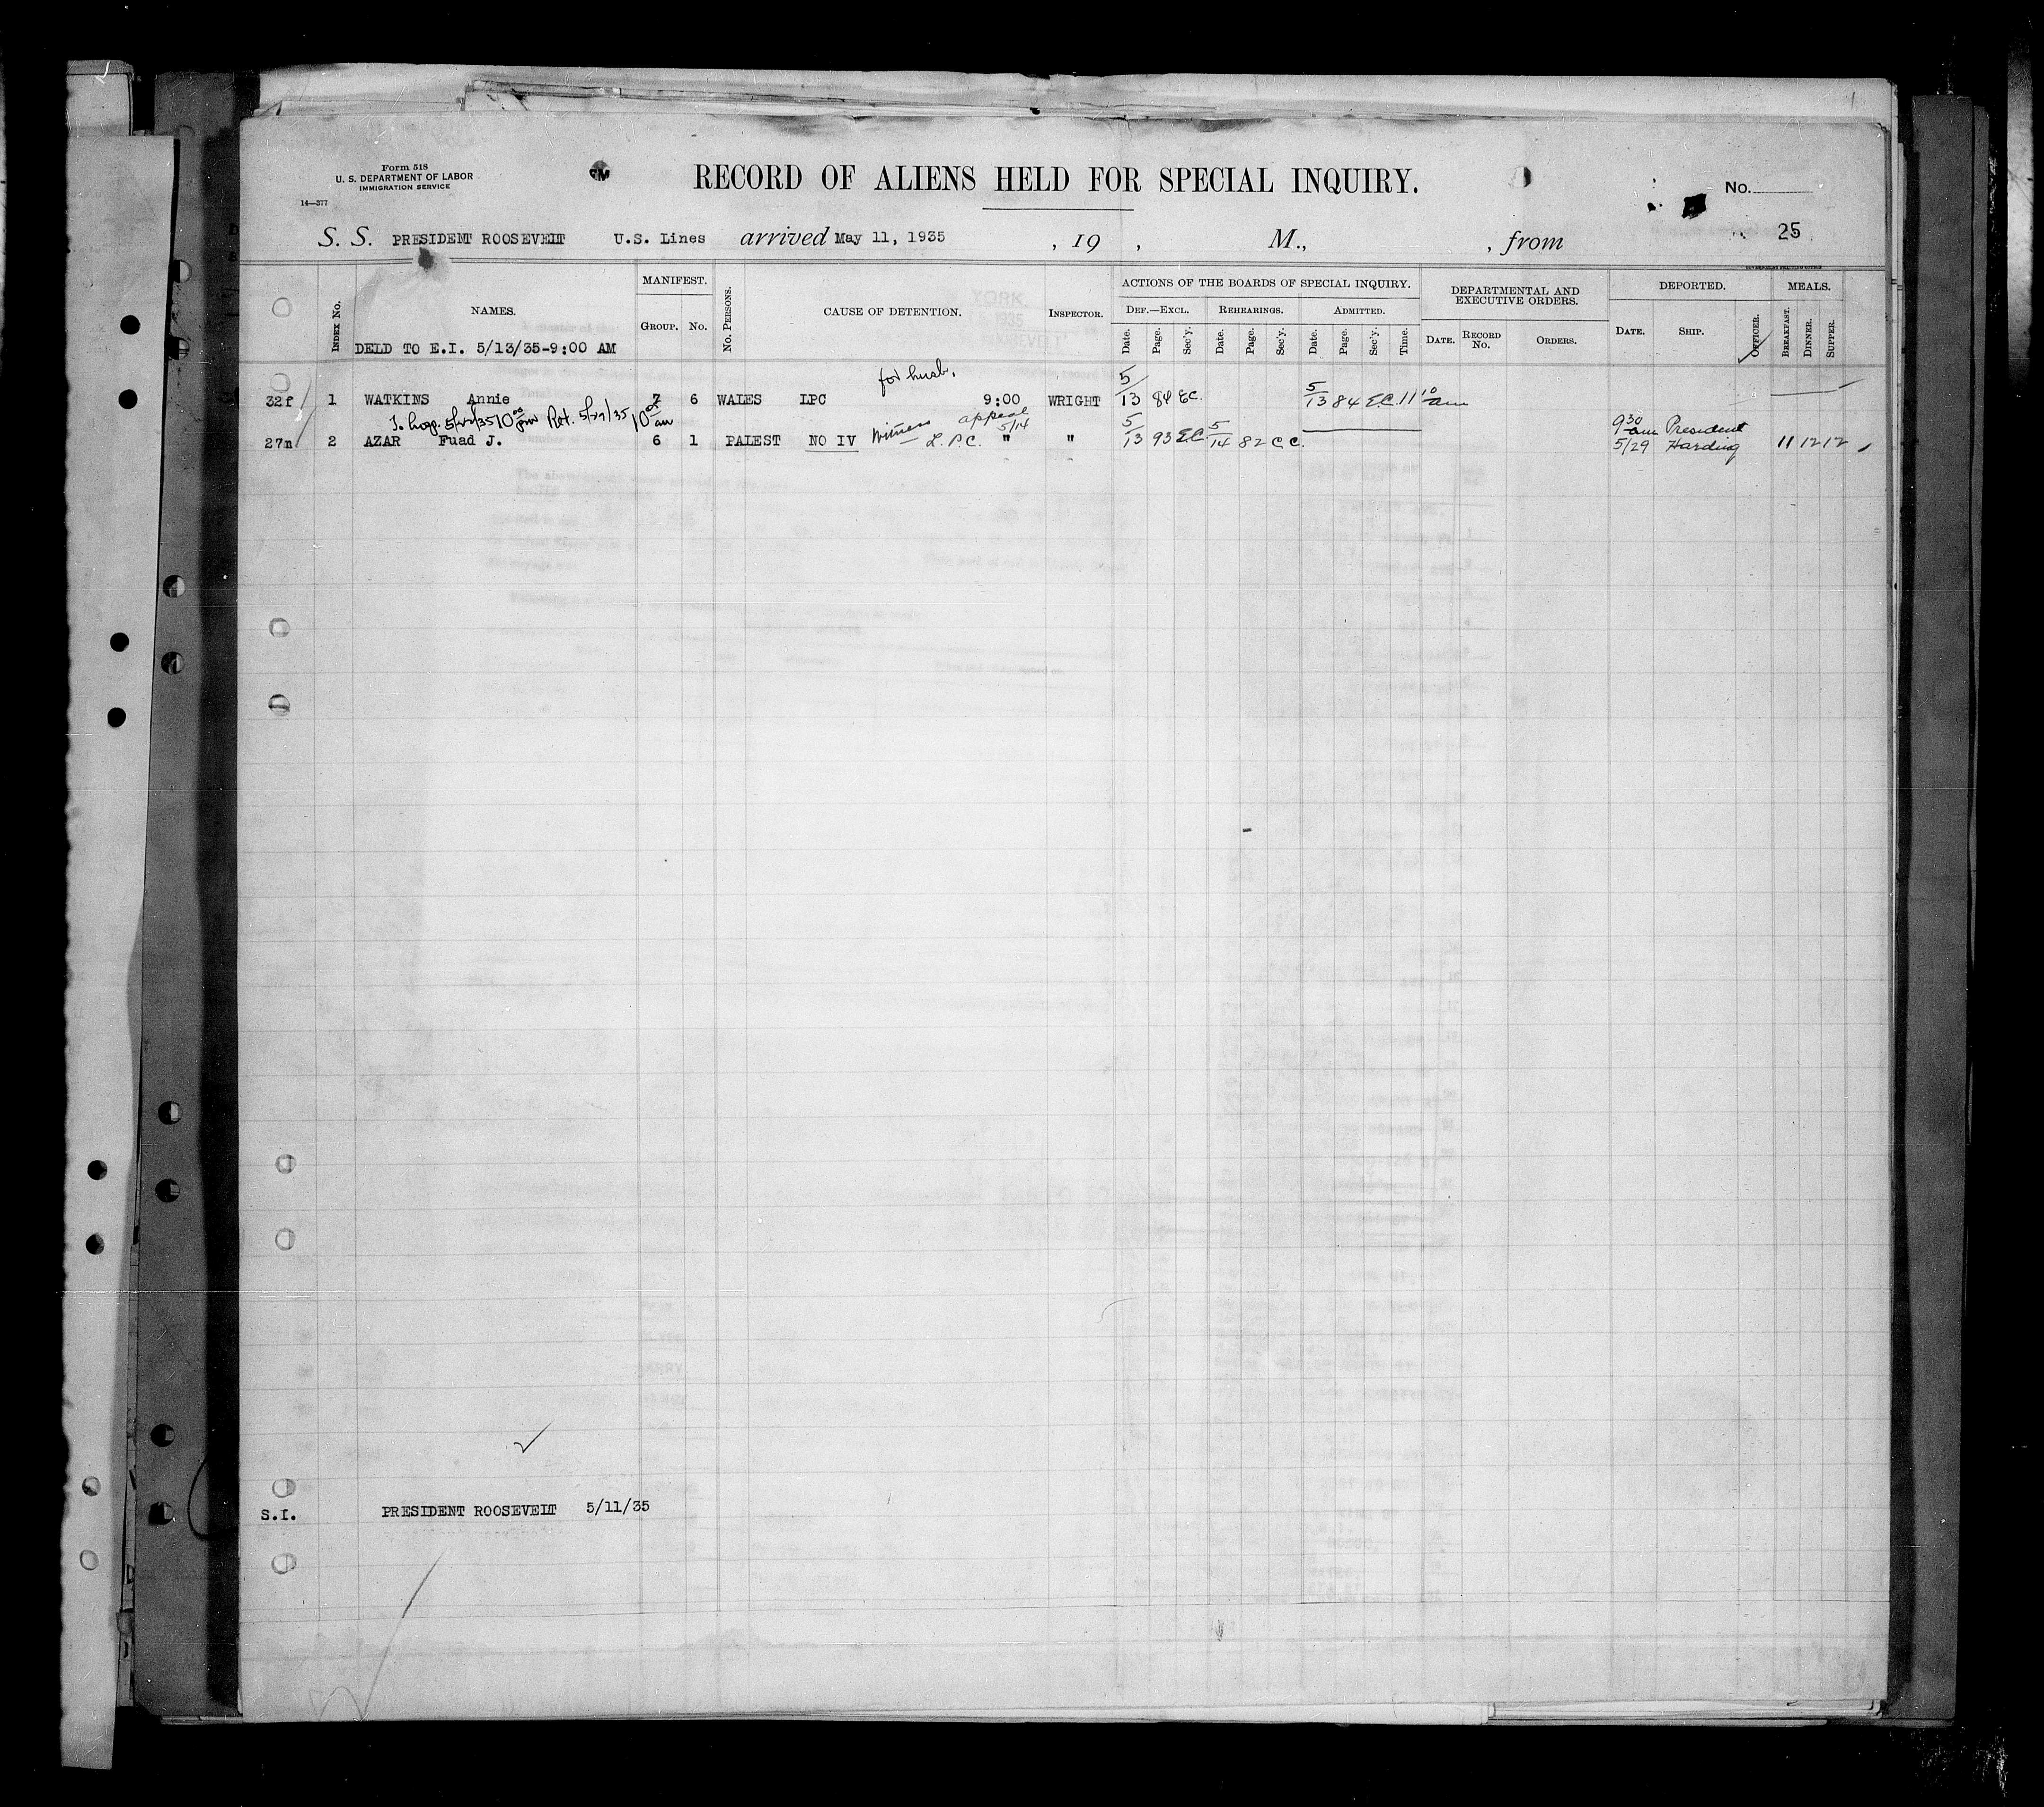 Form 518
U. S. DEPARTMENT OF LABOR
IMMIGRATION SERVICE
14—377
RECORD OF ALIENS HELD FOR SPECIAL INQUIRY.
No.
25
S. S. PRESIDENT ROOSEVELT U.S. Lines arrived May 11, 1935 , 19 , M., , from
Index No.
NAMES.
DELD TO E.I. 5/13/35-9:00 AM
MANIFEST.
Group. No.
No. Persons.
CAUSE OF DETENTION.
Inspector.
ACTIONS OF THE BOARDS OF SPECIAL INQUIRY.
Def.—Excl. Rehearings. Admitted.
Date. Page. Sec'y. Date. Page. Sec'y. Date. Page. Sec'y. Time.
DEPARTMENTAL AND EXECUTIVE ORDERS.
Date. Record No. Orders.
DEPORTED.
Date. Ship. Officer.
MEALS.
Breakfast. Dinner. Supper.
for husb.
32f 1 WATKINS Annie 7 6 WALES LPC 9:00 WRIGHT 5/13 84 E.C. 5/13 84 E.C. 11 10 am
To hosp. 5/22/35 10 00 pm Ret. 5/27/35 10 05 am
appeal 5/14
27m 2 AZAR Fuad J. 6 1 PALEST NO IV Witness L.P.C. " " 5/13 93 E.C. 5/14 82 C.C. 9 30 am 5/29 President Harding 11 12 12
S.I. PRESIDENT ROOSEVELT 5/11/35